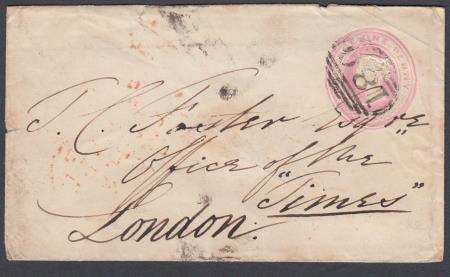 ONE PENNY
T. C. Foster Esqre
Office of the
"Times"
London.